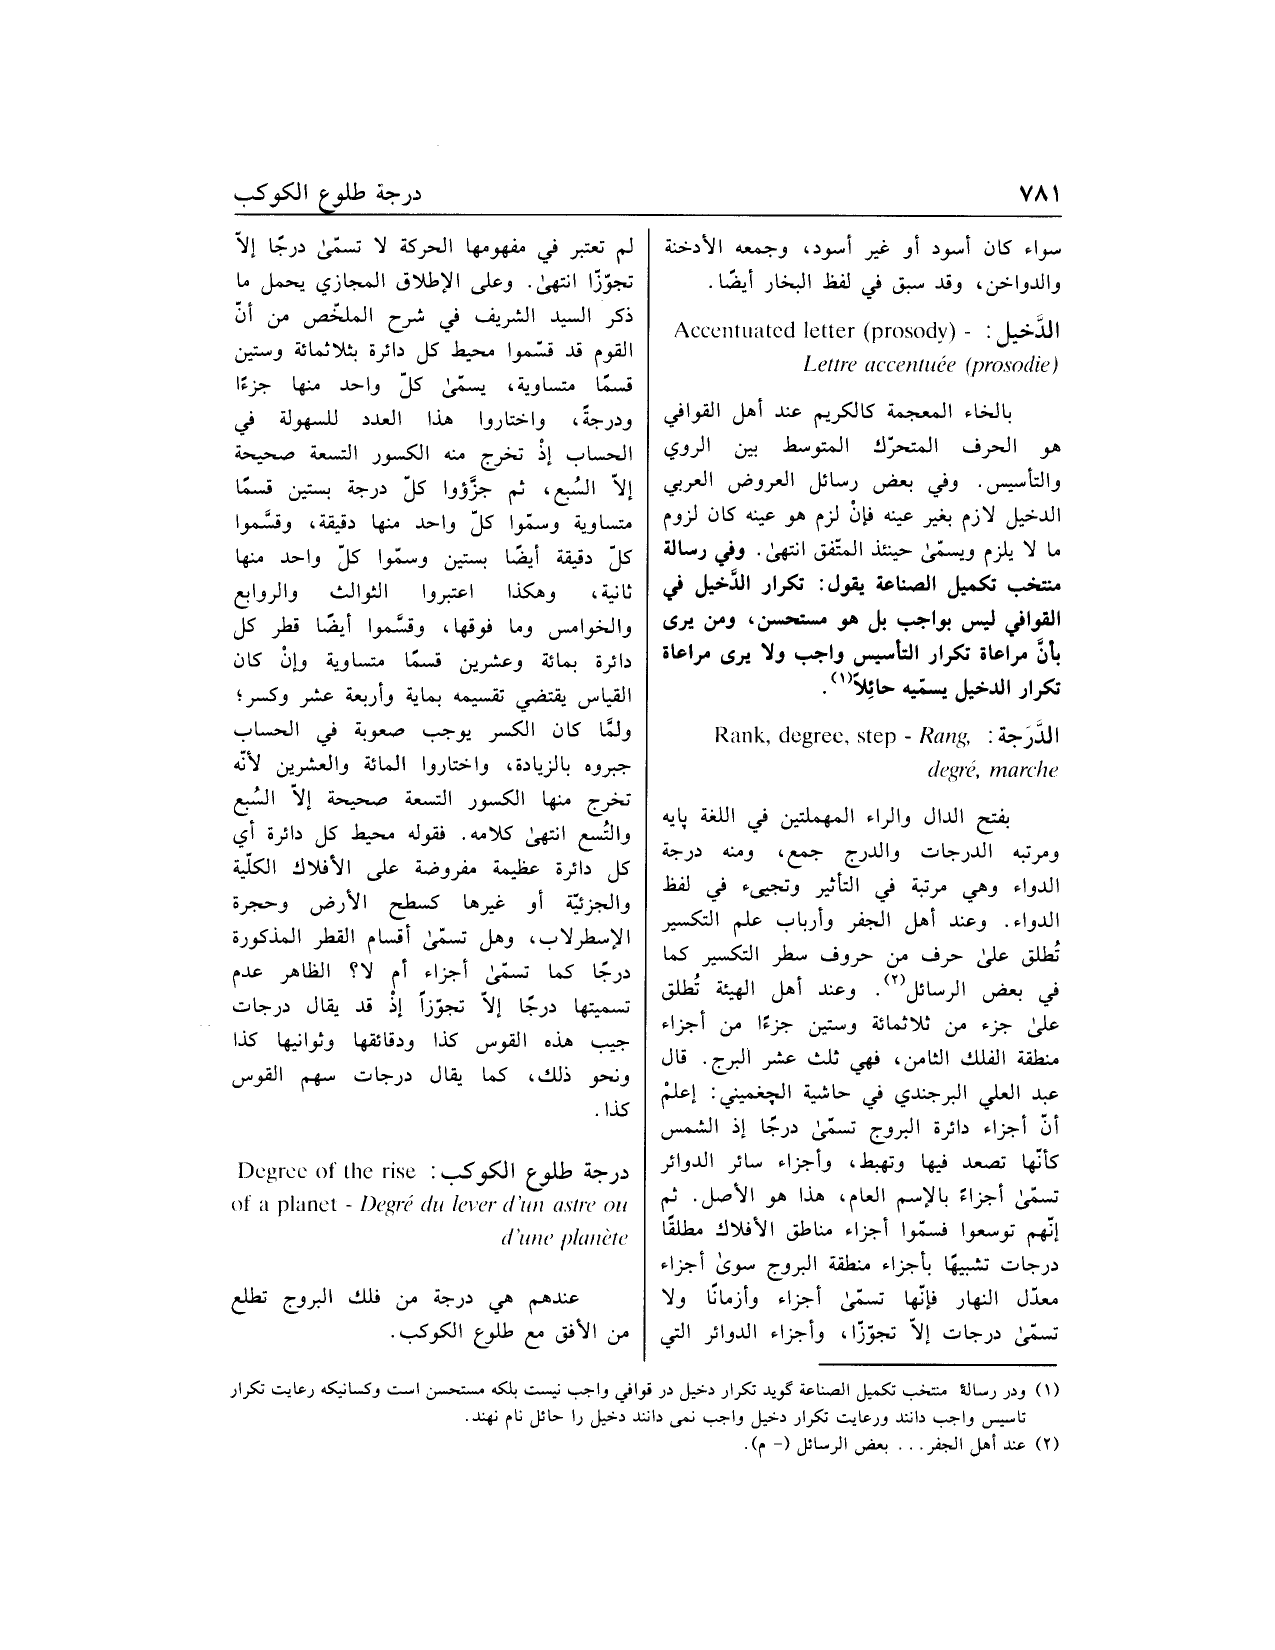 ٧٨١
درجة طلوع الكوكب
سواء كان أسود أو غير أسود، وجمعه الأدخنة
والدواخن، وقد سبق في لفظ البخار أيضًا.
الدَّخيل: Accentuated letter (prosody) -
Lettre accentuée (prosodie)
بالخاء المعجمة كالكريم عند أهل القوافي
هو الحرف المتحرّك المتوسط بين الروي
والتأسيس. وفي بعض رسائل العروض العربي
الدخيل لازم بغير عينه فإنْ لزم هو عينه كان لزوم
ما لا يلزم ويسمّىٰ حينئذ المتّفق انتهىٰ. وفي رسالة
منتخب تكميل الصناعة يقول: تكرار الدَّخيل في
القوافي ليس بواجب بل هو مستحسن، ومن يرى
بأنَّ مراعاة تكرار التأسيس واجب ولا يرى مراعاة
تكرار الدخيل يسمّيه حائِلاً(١).
الدَّرَجة: Rank, degree, step - Rang,
degré, marche
بفتح الدال والراء المهملتين في اللغة پايه
ومرتبه الدرجات والدرج جمع، ومنه درجة
الدواء وهي مرتبة في التأثير وتجيىء في لفظ
الدواء. وعند أهل الجفر وأرباب علم التكسير
تُطلق علىٰ حرف من حروف سطر التكسير كما
في بعض الرسائل(٢). وعند أهل الهيئة تُطلق
علىٰ جزء من ثلاثمائة وستين جزءًا من أجزاء
منطقة الفلك الثامن، فهي ثلث عشر البرج. قال
عبد العلي البرجندي في حاشية الچغميني: إعلمْ
أنّ أجزاء دائرة البروج تسمّىٰ درجًا إذ الشمس
كأنّها تصعد فيها وتهبط، وأجزاء سائر الدوائر
تسمّىٰ أجزاءً بالإسم العام، هذا هو الأصل. ثم
إنّهم توسعوا فسمّوا أجزاء مناطق الأفلاك مطلقًا
درجات تشبيهًا بأجزاء منطقة البروج سوىٰ أجزاء
معدّل النهار فإنّها تسمّىٰ أجزاء وأزمانًا ولا
تسمّىٰ درجات إلاّ تجوّزًا، وأجزاء الدوائر التي
لم تعتبر في مفهومها الحركة لا تسمّىٰ درجًا إلاّ
تجوّزًا انتهىٰ. وعلى الإطلاق المجازي يحمل ما
ذكر السيد الشريف في شرح الملخّص من أنّ
القوم قد قسّموا محيط كل دائرة بثلاثمائة وستين
قسمًا متساوية، يسمّىٰ كلّ واحد منها جزءًا
ودرجةً، واختاروا هذا العدد للسهولة في
الحساب إذْ تخرج منه الكسور التسعة صحيحة
إلاّ السُبع، ثم جزَّؤوا كلّ درجة بستين قسمًا
متساوية وسمّوا كلّ واحد منها دقيقة، وقسَّموا
كلّ دقيقة أيضًا بستين وسمّوا كلّ واحد منها
ثانية، وهكذا اعتبروا الثوالث والروابع
والخوامس وما فوقها، وقسَّموا أيضًا قطر كل
دائرة بمائة وعشرين قسمًا متساوية وإنْ كان
القياس يقتضي تقسيمه بماية وأربعة عشر وكسر؛
ولمَّا كان الكسر يوجب صعوبة في الحساب
جبروه بالزيادة، واختاروا المائة والعشرين لأنّه
تخرج منها الكسور التسعة صحيحة إلاّ السُبع
والتُسع انتهىٰ كلامه. فقوله محيط كل دائرة أي
كل دائرة عظيمة مفروضة على الأفلاك الكلّية
والجزئيّة أو غيرها كسطح الأرض وحجرة
الإسطرلاب، وهل تسمّىٰ أقسام القطر المذكورة
درجًا كما تسمّىٰ أجزاء أم لا؟ الظاهر عدم
تسميتها درجًا إلاّ تجوّزاً إذْ قد يقال درجات
جيب هذه القوس كذا ودقائقها وثوانيها كذا
ونحو ذلك، كما يقال درجات سهم القوس
كذا.
درجة طلوع الكوكب: Degree of the rise
of a planet - Degré du lever d'un astre ou
d'une planète
عندهم هي درجة من فلك البروج تطلع
من الأفق مع طلوع الكوكب.
(١) ودر رسالۀ منتخب تكميل الصناعة گويد تكرار دخيل در قوافي واجب نيست بلكه مستحسن است وكسانيكه رعايت تكرار
تاسيس واجب دانند ورعايت تكرار دخيل واجب نمى دانند دخيل را حائل نام نهند.
(٢) عند أهل الجفر... بعض الرسائل (- م).